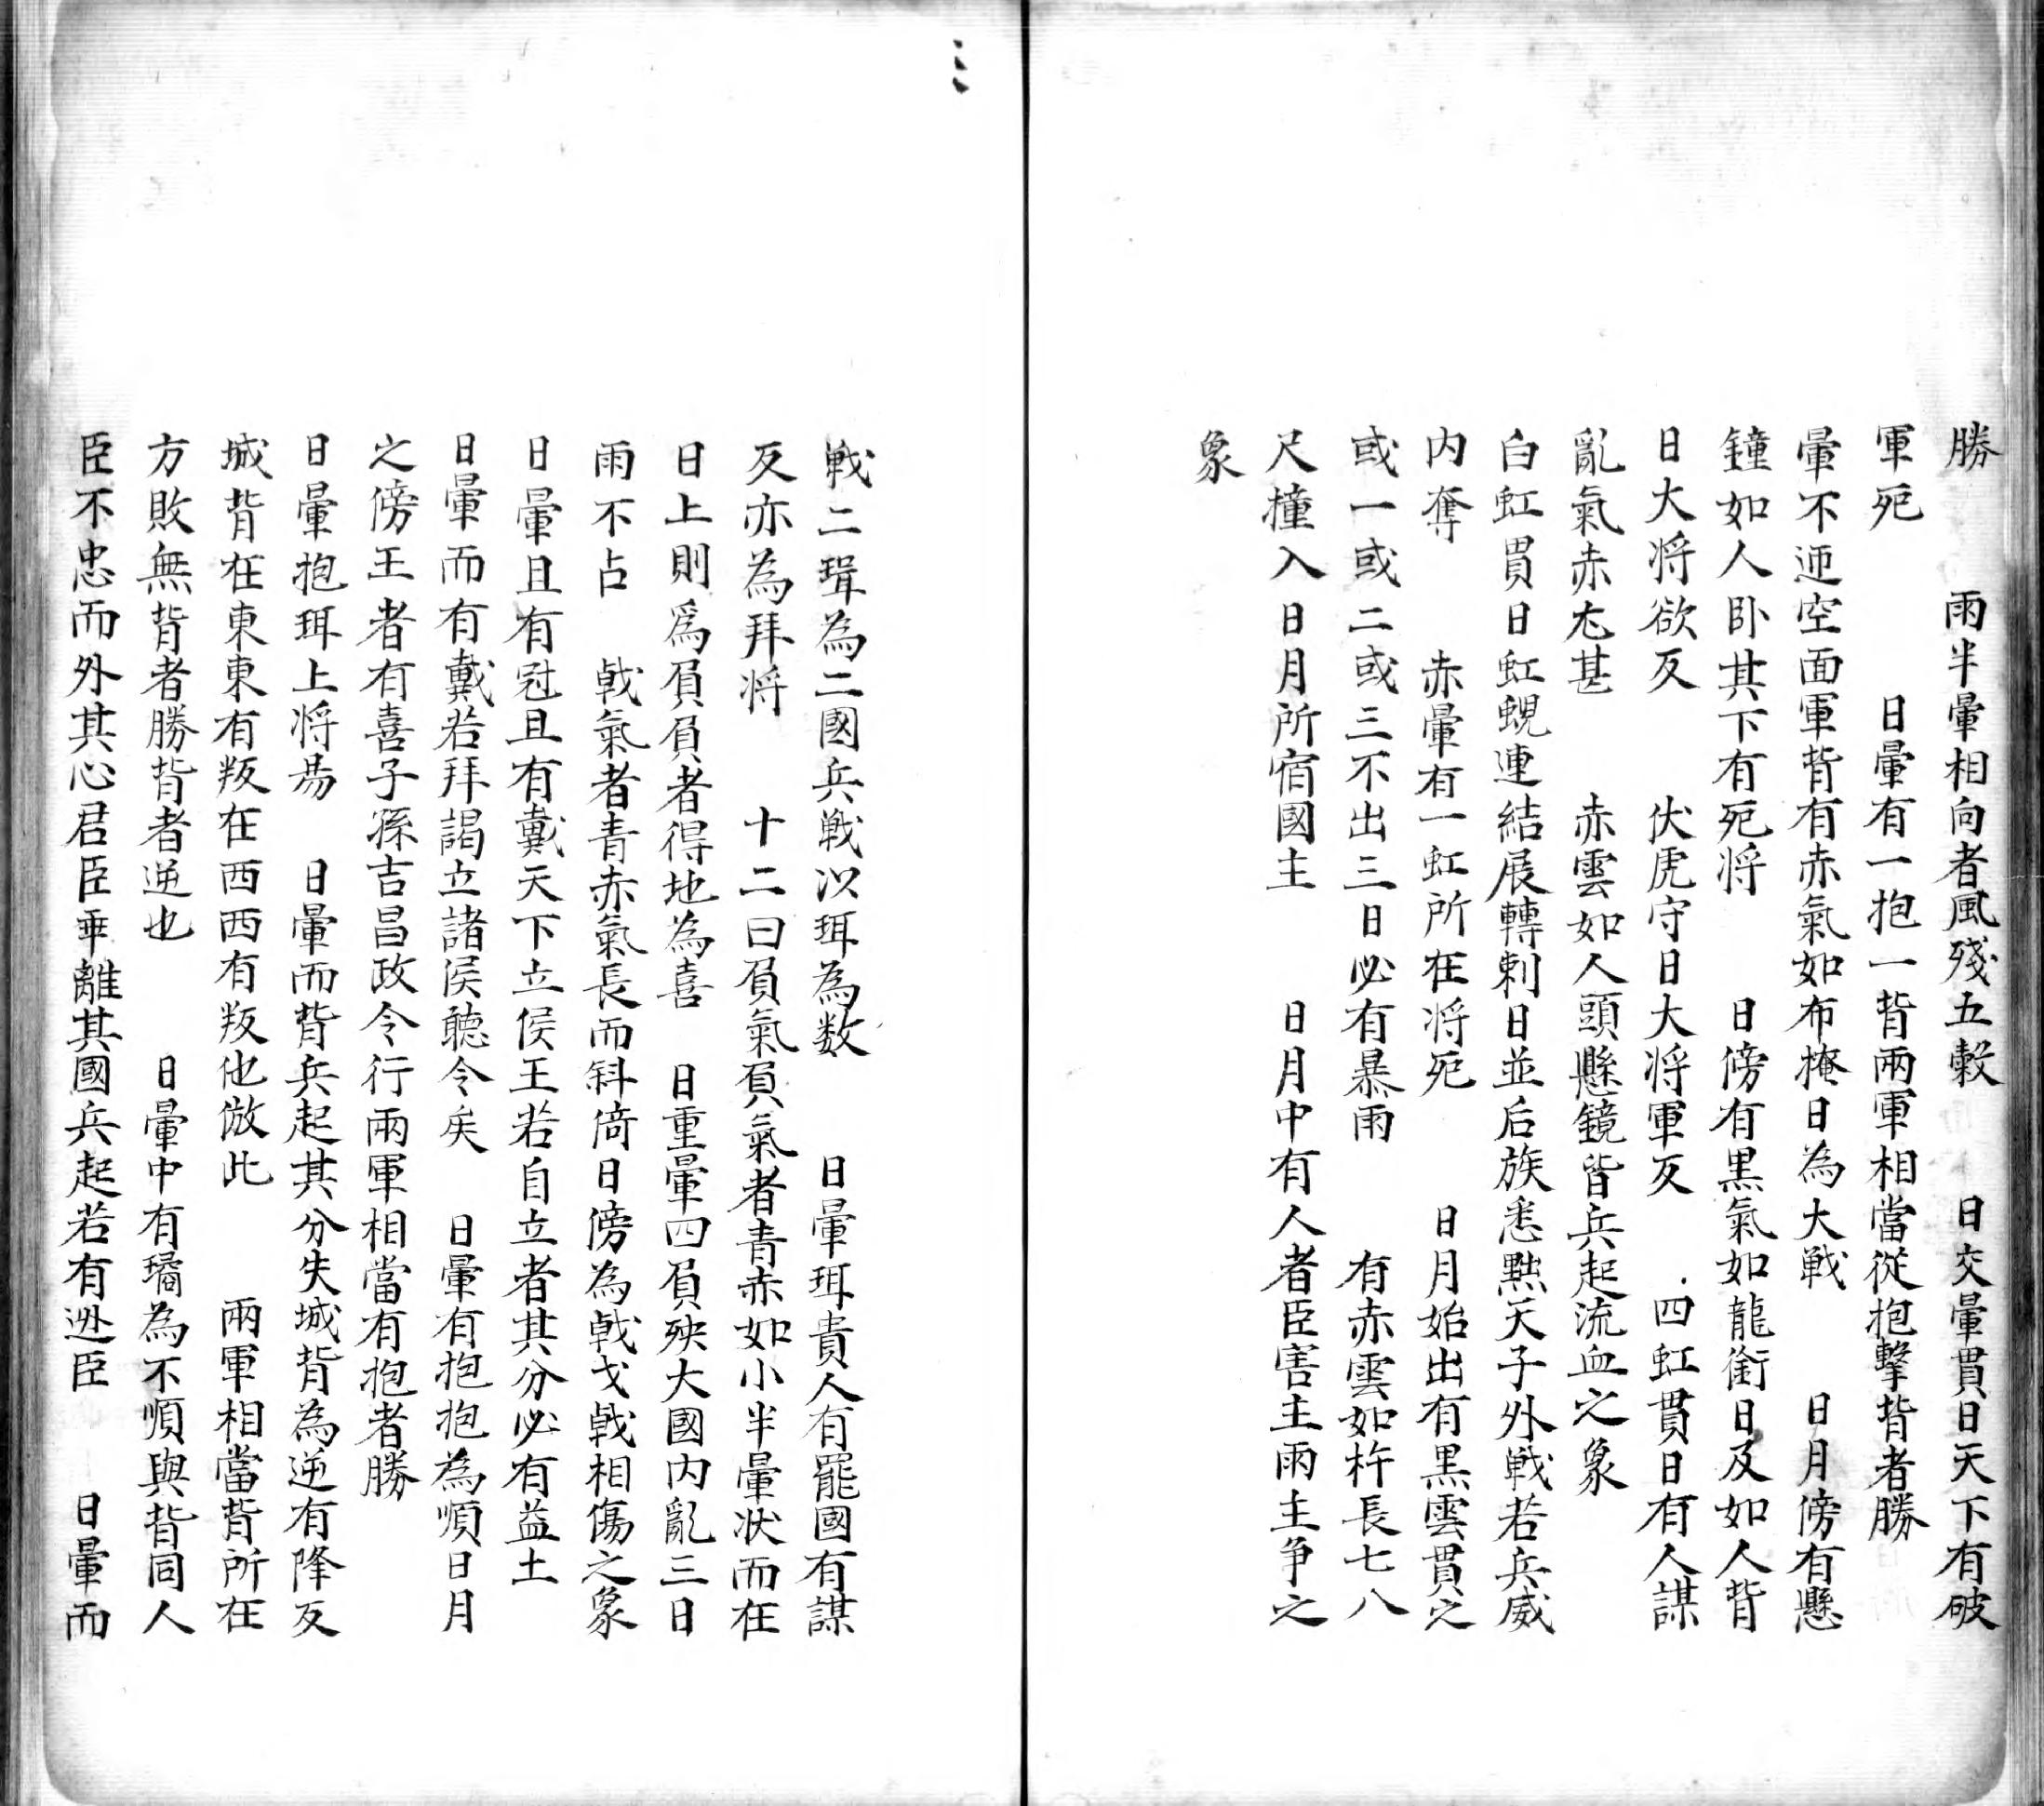 勝　雨半暈相向者風殘五穀　日交暈貫日天下有破
軍死　日暈有一抱一背兩軍相當從抱擊背者勝
暈不迊空面軍背有赤氣如布掩日為大戦　日月傍有懸
鐘如人卧其下有死将　日傍有黒氣如龍銜日及如人背
日大将欲反　伏虎守日大将軍反　四虹貫日有人謀
亂氣赤尤甚　赤雲如人頭懸鏡皆兵起流血之象
白虹貫日虹蜺連結展轉刺日並后族悉黜天子外戦若兵威
内奪　赤暈有一虹所在将死　日月始出有黒雲貫之
或一或二或三不出三日必有暴雨　有赤雲如杵長七八
尺撞入日月所宿國主　日月中有人者臣害主雨主争之
象
戦二珥為二國兵戦以珥為数　日暈珥貴人有罷國有謀
反亦為拜将　十二曰負氣負氣者青赤如小半暈状而在
日上則爲負負者得地為喜　日重暈四負殃大國内亂三日
雨不占　戟氣者青赤氣長而斜倚日傍為戟戈戟相傷之象
日暈且有冠且有戴天下立侯王若自立者其分必有益土
日暈而有戴若拜謁立諸侯聴令矣　日暈有抱抱為順日月
之傍王者有喜子孫吉昌政令行兩軍相當有抱者勝
日暈抱珥上将昜　日暈而背兵起其分失城背為逆有降反
城背在東東有叛在西西有叛他倣此　兩軍相當背所在
方敗無背者勝背者逆也　日暈中有璚為不順與背同人
臣不忠而外其心君臣乖離其國兵起若有迯臣　日暈而